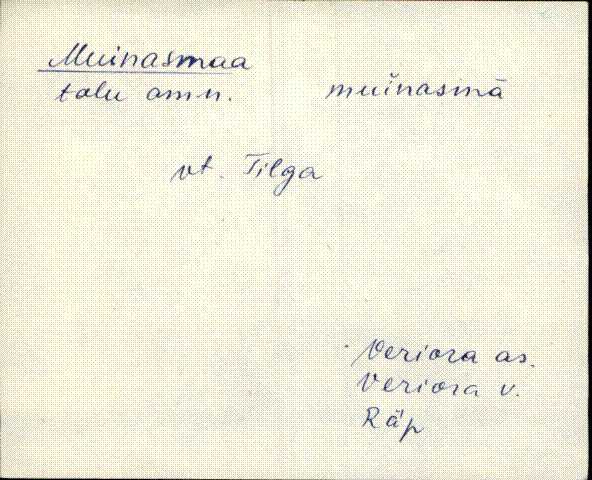 Muinasmaa
talu amn. muĭnasmā
vt. Tilga
Veriora as.
Veriora v.
Räp